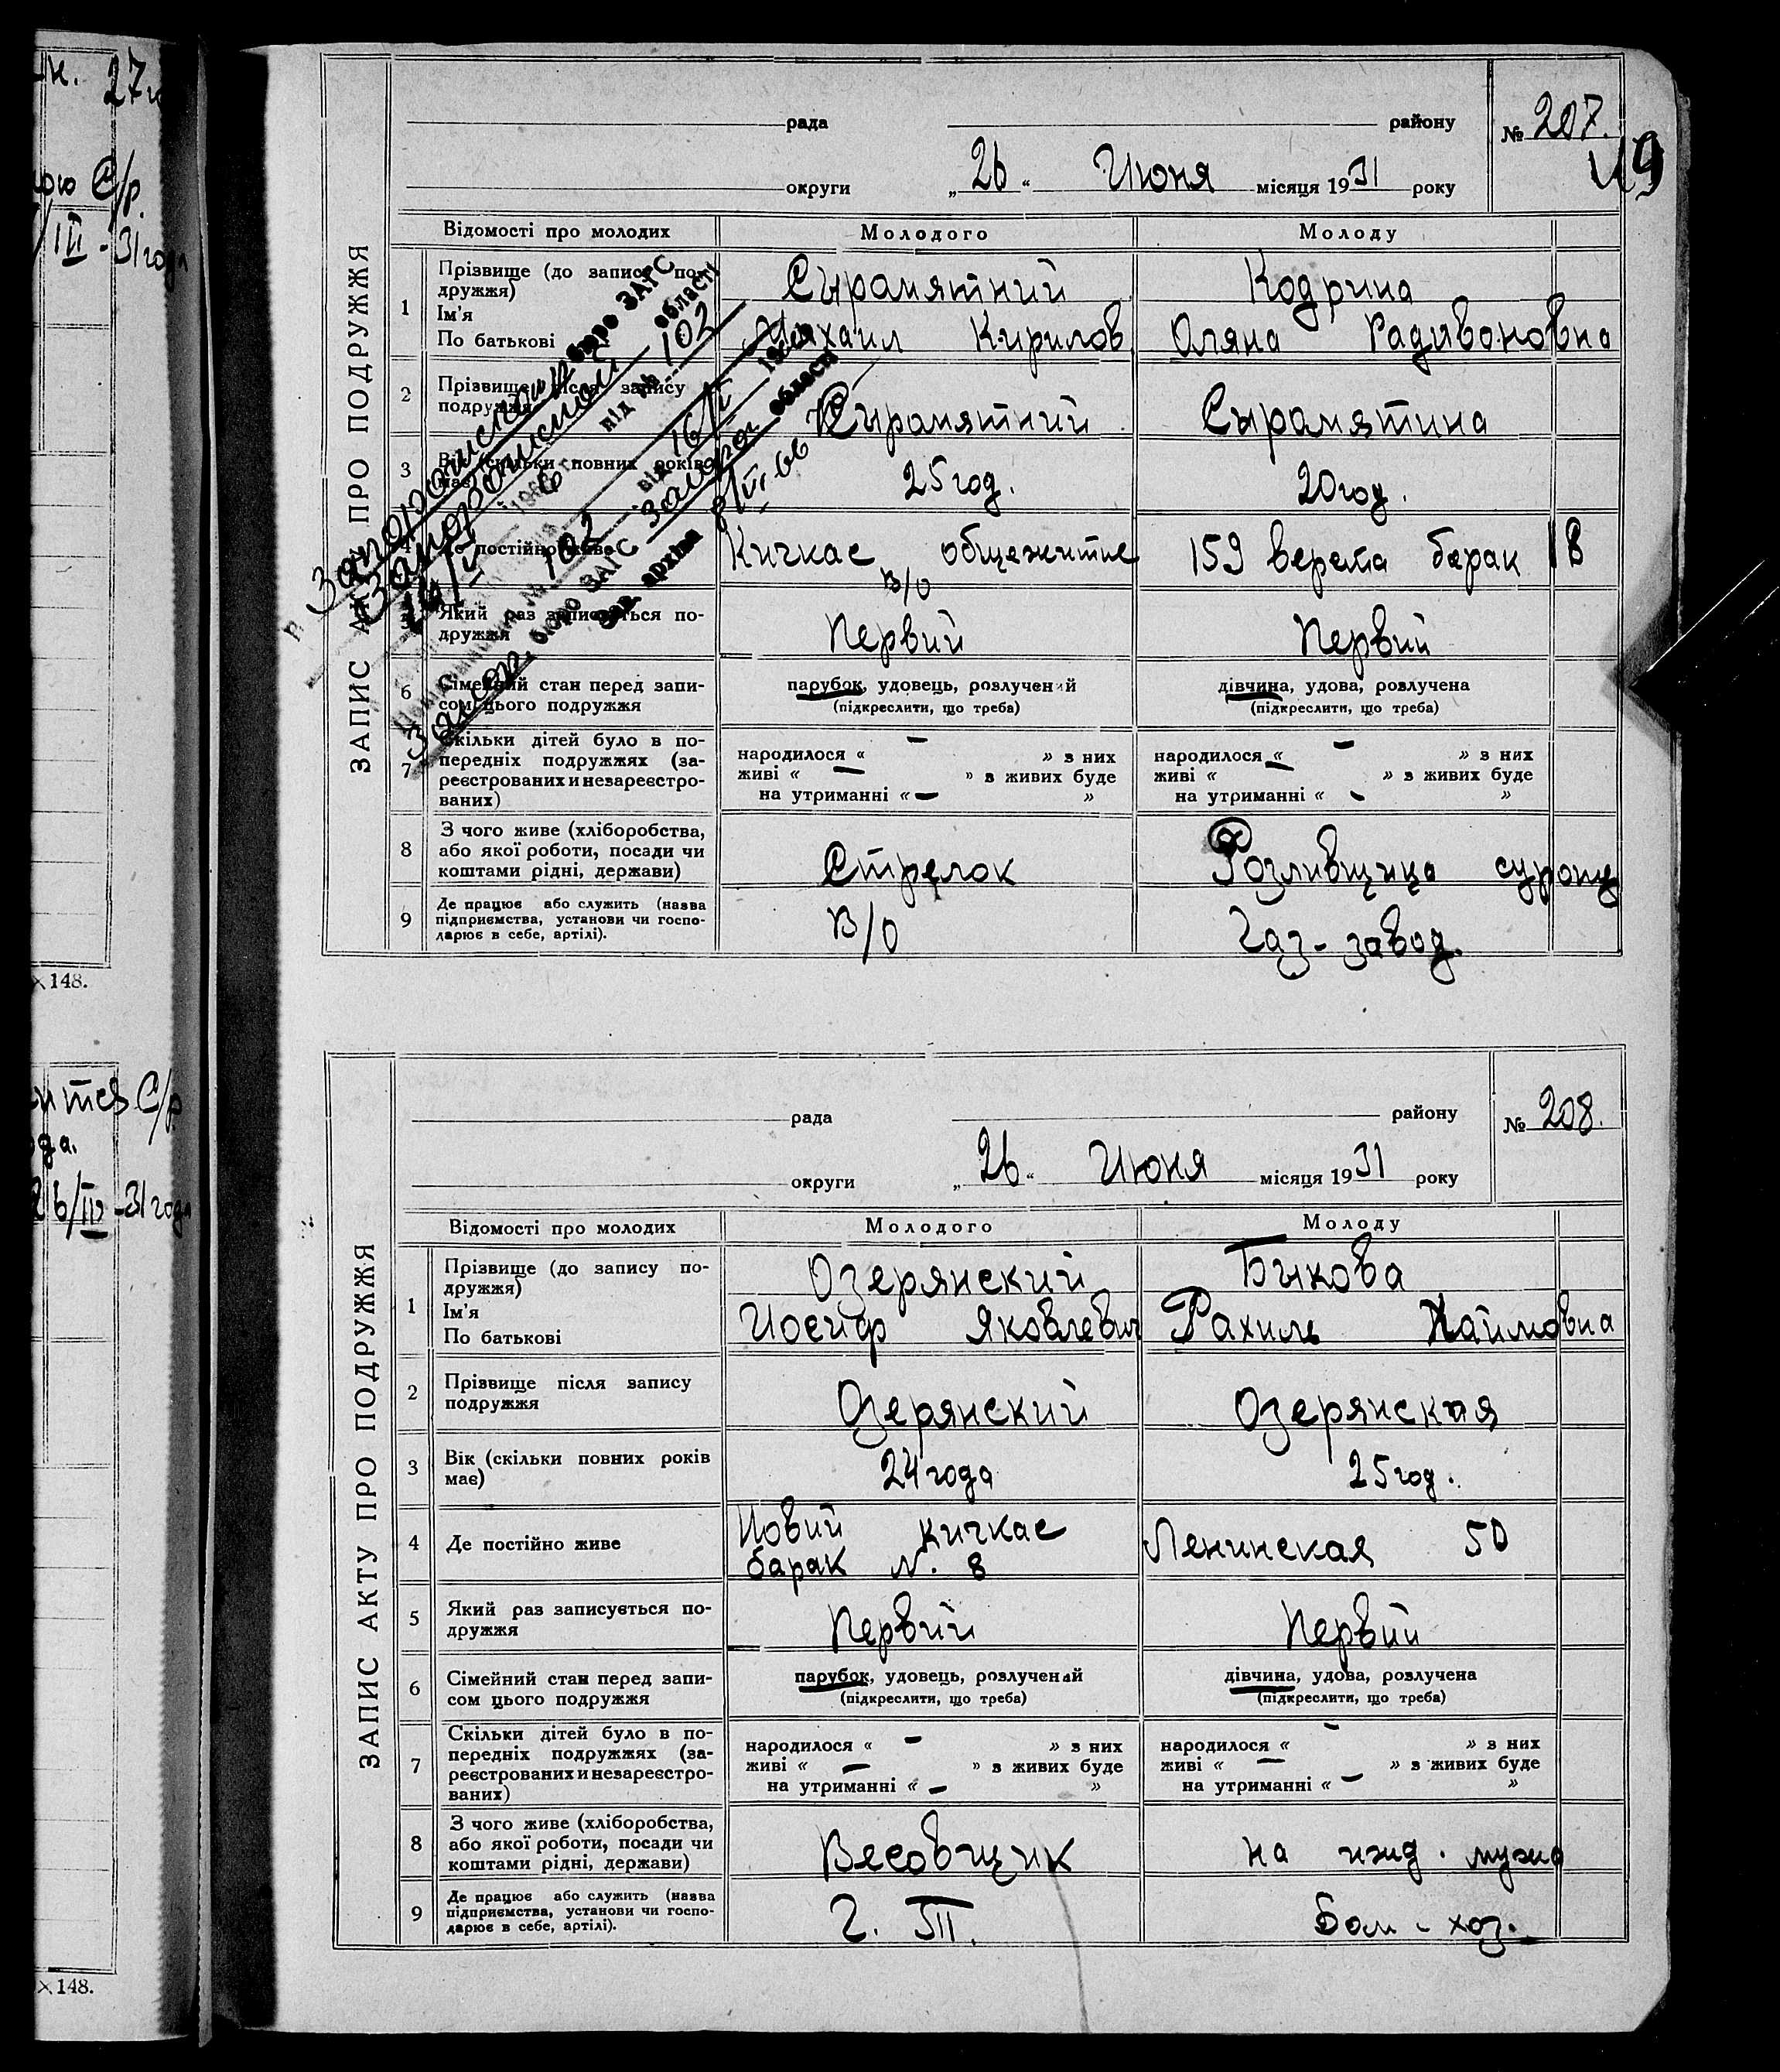 н. 27
С/р.
III - 31 года
× 148.
С/р
да.
26/III - 31 года
× 148.
ЗАПИС АКТУ ПРО ПОДРУЖЖЯ
рада району № 207.
49
округи „26“ Июня місяця 1931 року
Відомості про молодих Молодого Молоду
1 Прізвище (до запису подружжя) Сырамятний Кодрина
Ім'я
По батькові Михаил Кирилов Оляна Радивоновна
2 Прізвище після запису
подружжя Сырамятний Сырамятина
3 Вік (скільки повних років
має) 25 год. 20 год.
4 Де постійно живе Кичкас общежитие 159 верста барак 18
В/О
5 Який раз записується по-
дружжя Первий Первий
6 Сімейний стан перед запи- парубок, удовець, розлучений дівчина, удова, розлучена
сом цього подружжя (підкреслити, що треба) (підкреслити, що треба)
7 Скільки дітей було в по-
передніх подружжях (за- народилося « — » з них народилося « — » з них
реєстрованих и незареєстро- живі « — » з живих буде живі « — » з живих буде
ваних) на утриманні « — » на утриманні « — »
8 З чого живе (хліборобства,
або якої роботи, посади чи Стрелок Розливщица
коштами рідні, держави)
9 Де працює або служить (назва
підприємства, установи чи госпо- В/О Газ-завод.
дарює в себе, артілі).
бюро ЗАГС
області
під № 102
від 16/V
102
бюро ЗАГС Запор. області
Зав. архіва 8/VI-66
ЗАПИС АКТУ ПРО ПОДРУЖЖЯ
рада району № 208.
округи „26“ Июня місяця 1931 року
Відомості про молодих Молодого Молоду
1 Прізвище (до запису по-
дружжя) Озерянский Быкова
Ім'я
По батькові Иосиф Яковлевич Рахиль Хаимовна
2 Прізвище після запису
подружжя Озерянский Озерянская
3 Вік (скільки повних років
має) 24 года 25 год.
4 Де постійно живе Новий Кичкас Ленинская 50
барак N. 8
5 Який раз записується по-
дружжя Первий Первий
6 Сімейний стан перед запи- парубок, удовець, розлучений дівчина, удова, розлучена
сом цього подружжя (підкреслити, що треба) (підкреслити, що треба)
7 Скільки дітей було в по-
передніх подружжях (за- народилося « — » з них народилося « — » з них
реєстрованих и незареєстро- живі « — » з живих буде живі « — » з живих буде
ваних) на утриманні « — » на утриманні « — »
8 З чого живе (хліборобства,
або якої роботи, посади чи Весовщик на ижд. мужа
коштами рідні, держави)
9 Де працює або служить (назва
підприємства, установи чи госпо- хоз.
дарює в себе, артілі).